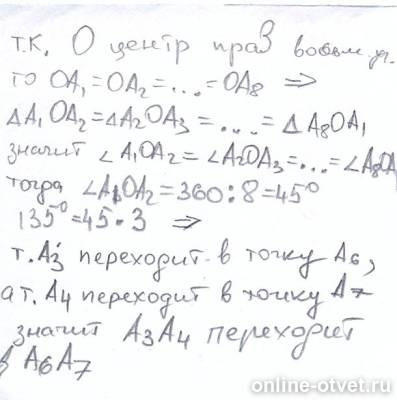 т.к. О центр прав восьм.уг.
то OA₁=OA₂=...=OA₈ ⇒
ΔA₁OA₂=ΔA₂OA₃=...=ΔA₈OA₁
значит ∠A₁OA₂=∠A₂OA₃=...=∠A₈OA
тогда ∠A₁OA₂=360:8=45°
135°=45·3 ⇒
т.A₃ переходит в точку A₆,
а т. A₄ переходит в точку A₇
значит A₃A₄ переходит
в A₆A₇
online-otvet.ru